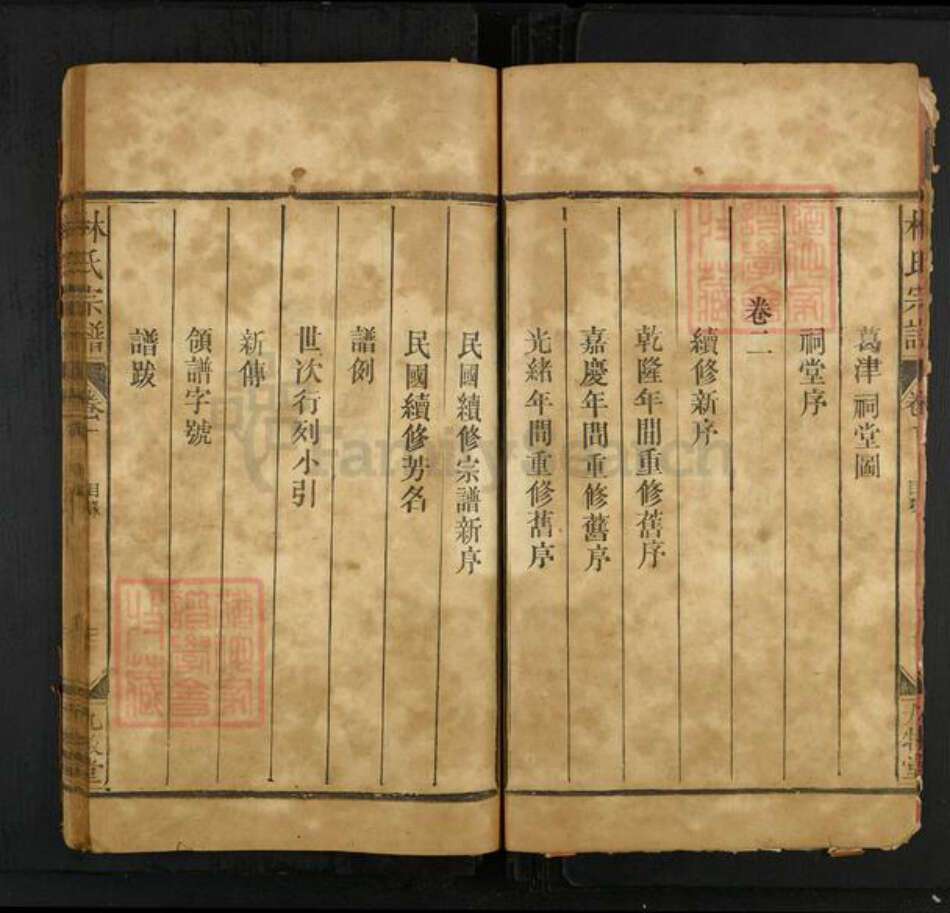 林氏宗譜
葛津祠堂圖
祠堂序
卷二
續修新序
乾隆年間重修舊序
嘉慶年間重修舊序
光緒年間重修舊序
民國續修宗譜新序
民國續修芳名
譜例
世次行列小引
新傳
領譜字號
譜跋
林氏宗譜
卷一
目錄
FamilySearch